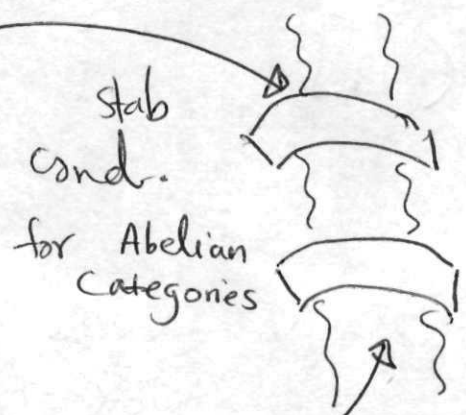 stab
cond.
for Abelian
Categories